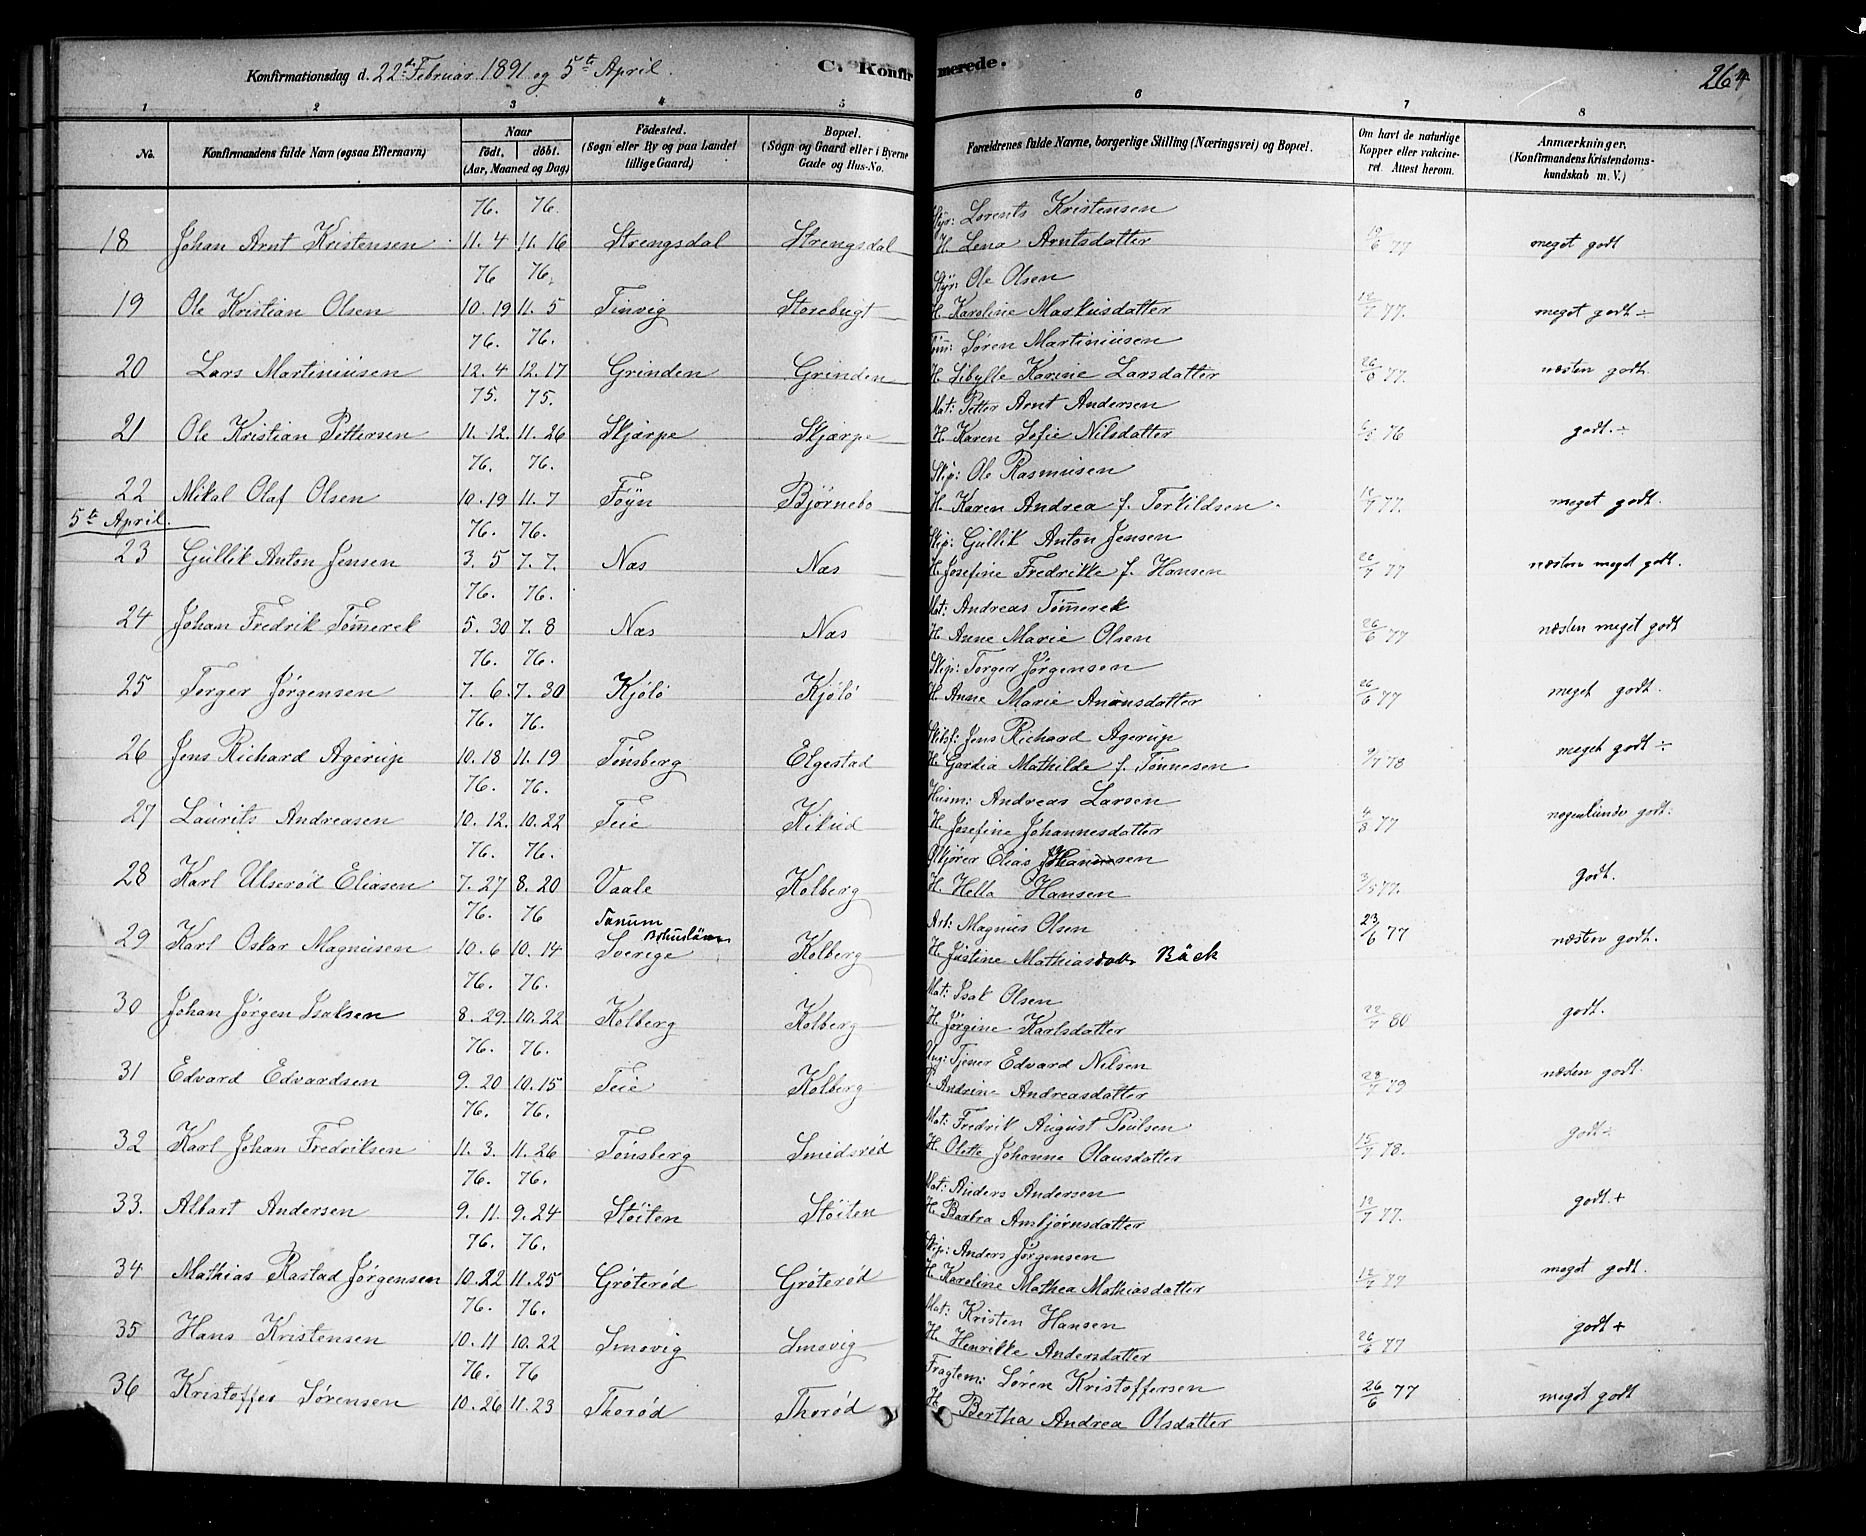 Konfirmationsdag d. 22de Februar 1891 og 5te April. C. Konfirmerede. 264
1 2 3 4 5 6 7 8
No. Konfirmandens fulde Navn (ogsaa Efternavn) Naar Födt. döbt. (Aar, Maaned og Dag) Födested. (Sogn eller By og paa Landet tillige Gaard) Bopæl. (Sogn og Gaard eller i Byerne Gade og Hus-No. Forældrenes fulde Navne, borgerlige Stilling (Næringsvei) og Bopæl. Om havt de naturlige Kopper eller vakcineret. Attest herom. Anmærkninger. (Konfirmandens Kristendomskundskab m. V.)
76. 76. Styr: Lorents Kristensen
18 Johan Arnt Kristensen 11. 4 11. 16 Strengsdal Strengsdal H. Lena Arntsdatter 19/6 77 meget godt
76 76. Styr: Ole Olsen
19 Ole Kristian Olsen 10. 19 11. 5 Tinvig Storebugt H. Karoline Markusdatter 12/7 77. meget godt ÷
76. 76. Tøm: Søren Martiniusen
20 Lars Martiniusen 12. 4 12. 17 Grinden Grinden H. Sibylle Karine Larsdatter 26/6 77. næsten godt.
75. 75. Mat: Petter Arnt Andersen
21 Ole Kristian Pettersen 11. 12. 11. 26 Skjærpe Skjærpe H. Karen Sofie Nilsdatter 76 godt. ÷
76. 76. Skip: Ole Rasmusen
22 Mikal Olaf Olsen 10. 19 11. 7 Föyn Bjørnebo H. Karen Andrea f. Torkildsen. 12/7 77. meget godt.
5te April.
76. 76. Skip: Gullik Anton Jensen
23 Gullik Anton Jensen 3. 5 7. 7. Næs Næs H. Josefine Fredrikke f. Hansen 77 næsten meget godt.
76. 76. Mat: Andreas Tømerek
24 Johan Fredrik Tømerek 5. 30 7. 8 Næs Næs H. Anne Marie Olsen 26/6 77 næsten meget godt
76. 76. Skip: Torger Jørgensen
25 Torger Jørgensen 7. 6. 7. 30 Kjölö Kjölö H. Anne Marie 26/6 77 meget godt.
76. 76. Jens Richard Agerup
26 Jens Richard Agerup 10. 18 11. 19 Tønsberg Elgestad H. Gardia Mathilde f. Tønnesen 9/7 78 meget godt ÷
76. 76. Husm: Andreas Larsen
27 Laurits Andreasen 10. 12. 10. 22 Teie Kikud H. Josefine Johannesdatter 4/8 77 nogenlunde godt.
76. 76. Elias
28 Karl Ulserød Eliasen 7. 27 8. 20 Vaale Kolberg H. Hella Hansen 3/5 77. godt.
76. 76 Tanum Bohuslän Arb: Magnus Olsen
29 Karl Oskar Magnusen 10. 6 10. 14 Sverige Kolberg H. Justine Mathiasdatter Bäck 23/6 77 næsten godt.
76. 76. Mat: Isak Olsen
30 Johan Jørgen Isaksen 8. 29. 10. 22 Kolberg Kolberg H. Jørgine Karlsdatter 22/7 80 godt.
76. 76. Ung: Tjener Edvard Nilsen
31 Edvard Edvardsen 9. 20 10. 15 Teie Kolberg P. Andrine Andreasdatter 28/7 79 næsten godt.
76. 76. Mat: Fredrik August Poulsen
32 Karl Johan Fredriksen 11. 3. 11. 26 Tønsberg Smidsrød H. Olette Johanne Olausdatter 15/7 78. godt ÷
76. 76. Mat: Anders Andersen
33. Albart Andersen 9. 11. 9. 24 Stöiten Stöiten H. Barbra Ansbjørnsdatter 12/7 77. godt. +
76. 76. Skip: Anders Jørgensen
34 Mathias Rastad Jørgensen 10. 22 11. 25 Grøterød Grøterød H. Karoline Mathea Mathiasdatter 12/7 77 meget godt.
76. 76. Mat: Kristen Hansen
35 Hans Kristensen 10. 11 10. 22 Smøvig Smøvig H. Henrikke Andersdatter 26/6 77 godt +
76. 76 Fragtem: Søren Kristoffersen
36 Kristoffer Sørensen 10. 26 11. 23 Thorød Thorød H. Bertha Andrea Olsdatter 26/6 77 meget godt